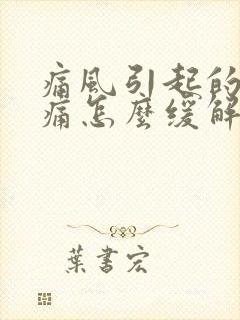 痛風引起的
痛怎麼緩解
葉書宏